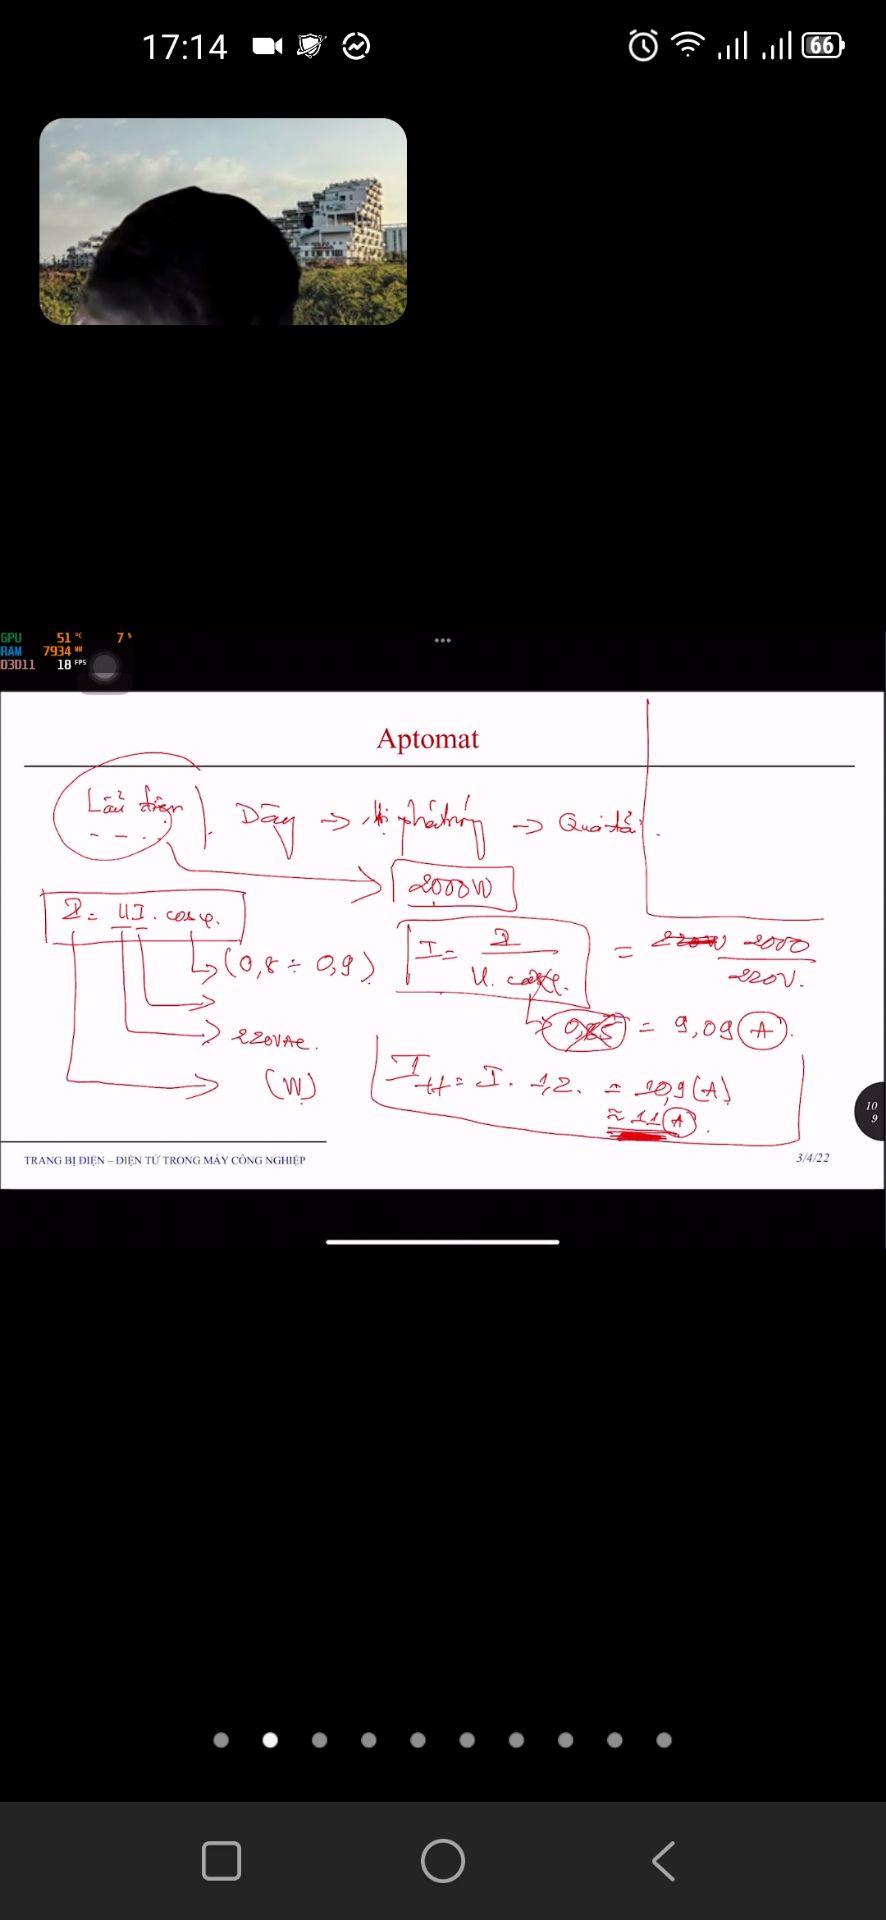 17:14
66
GPU 51 °C 7 %
RAM 7934 MB
D3D11 18 FPS
Aptomat
Lẩu điện
Dây → → Quá tải.
2000W
P = UI. cosφ.
(0,8 ÷ 0,9)
220VAC.
(W)
I = P / U. cosφ. = 2000 / 220V.
0,85 = 9,09 (A).
I = I. 1,2. = 10,9 (A)
≈ 11 (A).
10
9
TRANG BỊ ĐIỆN – ĐIỆN TỬ TRONG MÁY CÔNG NGHIỆP
3/4/22